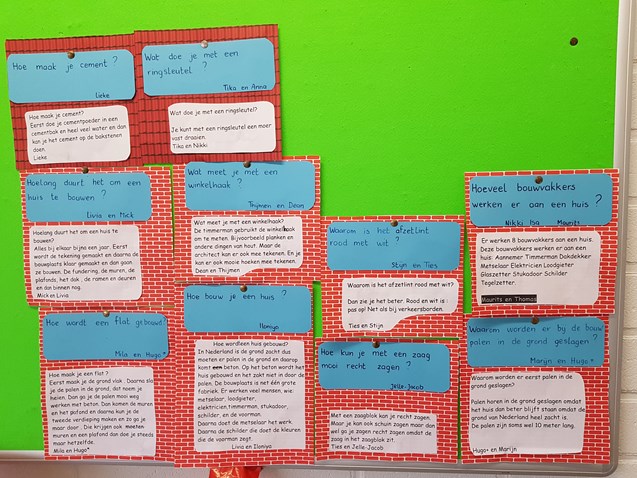 Hoe maak je cement ?
Lieke
Hoe maak je cement?
Eerst doe je cementpoeder in een
cementbak en heel veel water en dan
kan je het cement op de bakstenen
doen.
Lieke
Wat doe je met een
ringsleutel ?
Tika en Anna
Wat doe je met een ringsleutel?
Je kunt met een ringsleutel een moer
vast draaien.
Tika en Nikki
Hoelang duurt het om een
huis te bouwen ?
Livia en Mick
Hoelang duurt het om een huis te
bouwen?
Alles bij elkaar bijna een jaar. Eerst
wordt de tekening gemaakt en daarna de
bouwplaats klaar gemaakt en dan gaan
ze bouwen. De fundering, de muren, de
plafonds, het dak, de ramen en deuren
en dan binnen nog.
Mick en Livia
Wat meet je met een
winkelhaak ?
Thijmen en Dean
Wat meet je met een winkelhaak?
De timmerman gebruikt de winkelhaak
om te meten. Bijvoorbeeld planken en
andere dingen van hout. Maar de
architect kan er ook mee tekenen. En je
kan er ook mooie hoeken mee tekenen.
Dean en Thijmen
Waarom is het afzetlint
rood met wit ?
Stijn en Ties
Waarom is het afzetlint rood met wit?
Dan zie je het beter. Rood en wit is :
pas op! Net als bij verkeersborden.
Ties en Stijn
Hoeveel bouwvakkers
werken er aan een huis ?
Nikki Maurits
Er werken 8 bouwvakkers aan een huis.
Deze bouwvakkers werken er aan een
huis: Aannemer Timmerman Dakdekker
Metselaar Elektricien Loodgieter
Glaszetter Stukadoor Schilder
Tegelzetter.
Maurits en Thomas
Hoe wordt een flat gebouwd
Mila en Hugo*
Hoe maak je een flat ?
Eerst maak je de grond vlak. Daarna sla
je de palen in de grond, dat noem je
heien. Dan ga je de palen mooi weg
werken met beton. Dan komen de muren
en het plafond en daarna kun je de
tweede verdieping maken en zo ga je
maar door. Die krijgen ook moeten
muren en een plafond dan doe je steeds
maar hetzelfde.
Mila en Hugo*
Hoe bouw je een huis ?
Ilomiya
Hoe wordt een huis gebouwd?
In Nederland is de grond zacht dus
moeten er palen in de grond en daarop
komt een beton. Op het beton wordt het
huis gebouwd en het zakt niet in door de
palen. De bouwplaats is net één grote
fabriek. Er werken veel mensen, wie:
metselaar, loodgieter,
elektricien, timmerman, stukadoor,
schilder, en de voorman.
Daarna doet de metselaar het werk.
Daarna de schilder die doet de kleuren
die de voorman zegt.
Livia en Ilomiya
Hoe kun je met een zaag
mooi recht zagen ?
Jelle-Jacob
Met een zaagblok kan je recht zagen.
Maar je kan ook schuin zagen maar dan
wel ga je zagen recht zagen omdat de
zaag in het zaagblok zit.
Ties en Jelle-Jacob
Waarom worden er bij de bouw
palen in de grond geslagen ?
Marijn en Hugo*
Waarom worden er eerst palen in de
grond geslagen?
Palen horen in de grond geslagen omdat
het huis dan beter blijft staan omdat de
grond van Nederland heel zacht is.
De palen zijn soms wel 10 meter lang.
Hugo* en Marijn